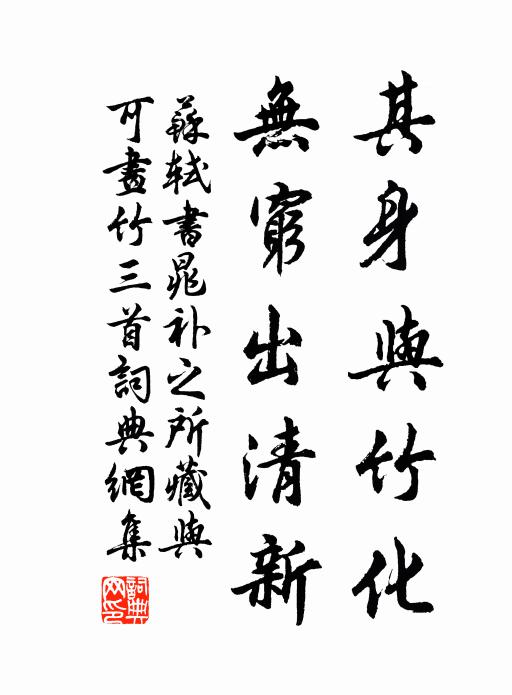 其身與竹化
無窮出清新
蘇軾書晁補之所藏與
可畫竹三首詞典網集
詞典
网印